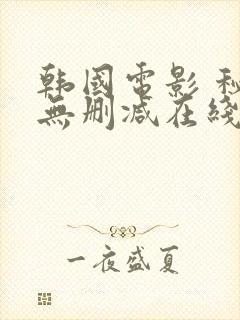 韩国电影
無删减在綫
一夜盛夏